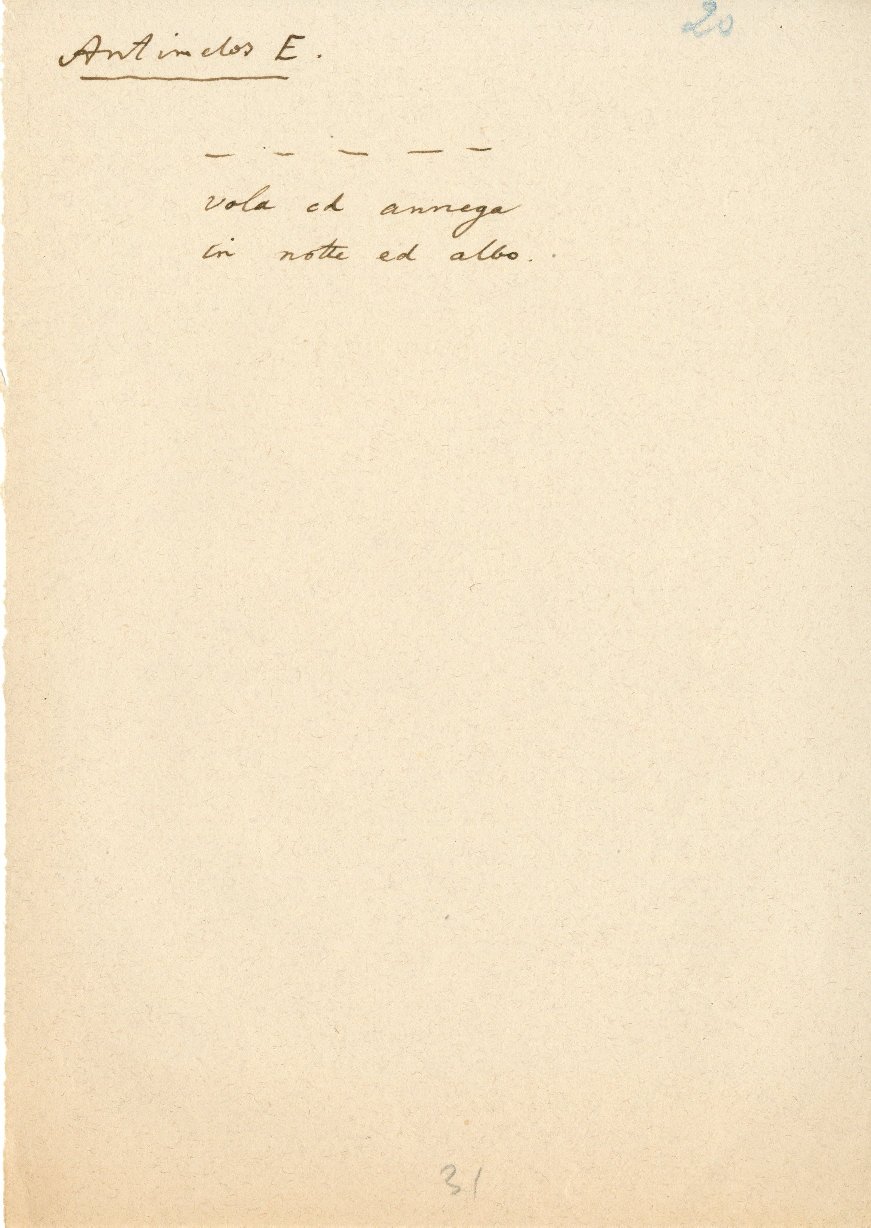 20
Antimelos E.
— — — — —
vola ed annega
in notte ed albo.
31